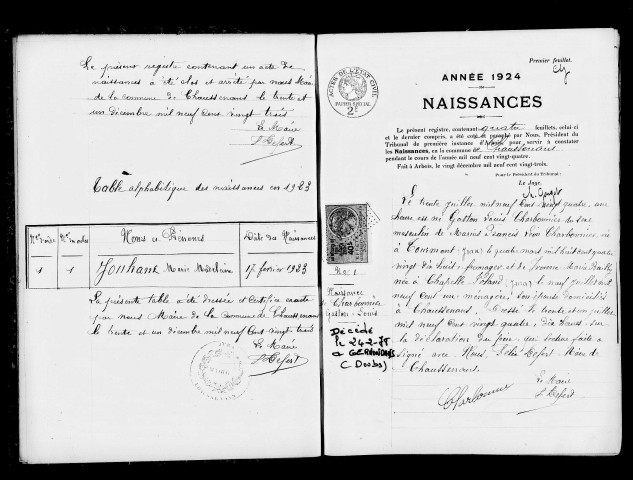 Le présent registre contenant un acte de
naissances a été clos et arrêté par nous Maire
de la commune de Chaussenans le trente et
un décembre mil neuf cent vingt trois
Le Maire
Table alphabétique des naissances en 1923
Nos d'ordre Noms et Prénoms Date des Naissances
1 1 Jouhans Marie Madeleine 17 février 1923
La présente table a été dressée et certifiée exacte
par nous Maire de la Commune de Chaussenans
le trente et un décembre mil neuf cent vingt trois
Le Maire
Premier feuillet.
ACTES DE L'ÉTAT CIVIL
PAPIER SPÉCIAL
2F
ANNÉE 1924
NAISSANCES
Le présent registre, contenant quatre feuillets, celui-ci
et le dernier compris, a été coté et paraphé par Nous, Président du
Tribunal de première instance d'Arbois pour servir à constater
les Naissances, en la commune de Chaussenans
pendant le cours de l'année mil neuf cent vingt-quatre.
Fait à Arbois, le vingt décembre mil neuf cent vingt-trois.
Pour le Président du Tribunal :
Le Juge,
No 1
Naissance
de Charbonnier
Gaston Louis
Décédé
le 24-2-75
(Doubs)
Le trente juillet mil neuf cent vingt quatre, une
heure est né Gaston Louis Charbonnier du sexe
masculin de Marius Francis Léon Charbonnier, né
à Tourmont (Jura) le quatre mars mil huit cent quatre
vingt dix huit, fromager et de Jeanne Marie
née à Chapelle Voland (Jura) le neuf juillet mil
neuf cent un ménagère, son épouse domiciliés
à Chaussenans. Dressé le trente et un juillet
mil neuf cent vingt quatre, dix heures sur
la déclaration du père qui lecture faite a
signé avec Nous, Maire de
Chaussenans.
Charbonnier
Le Maire